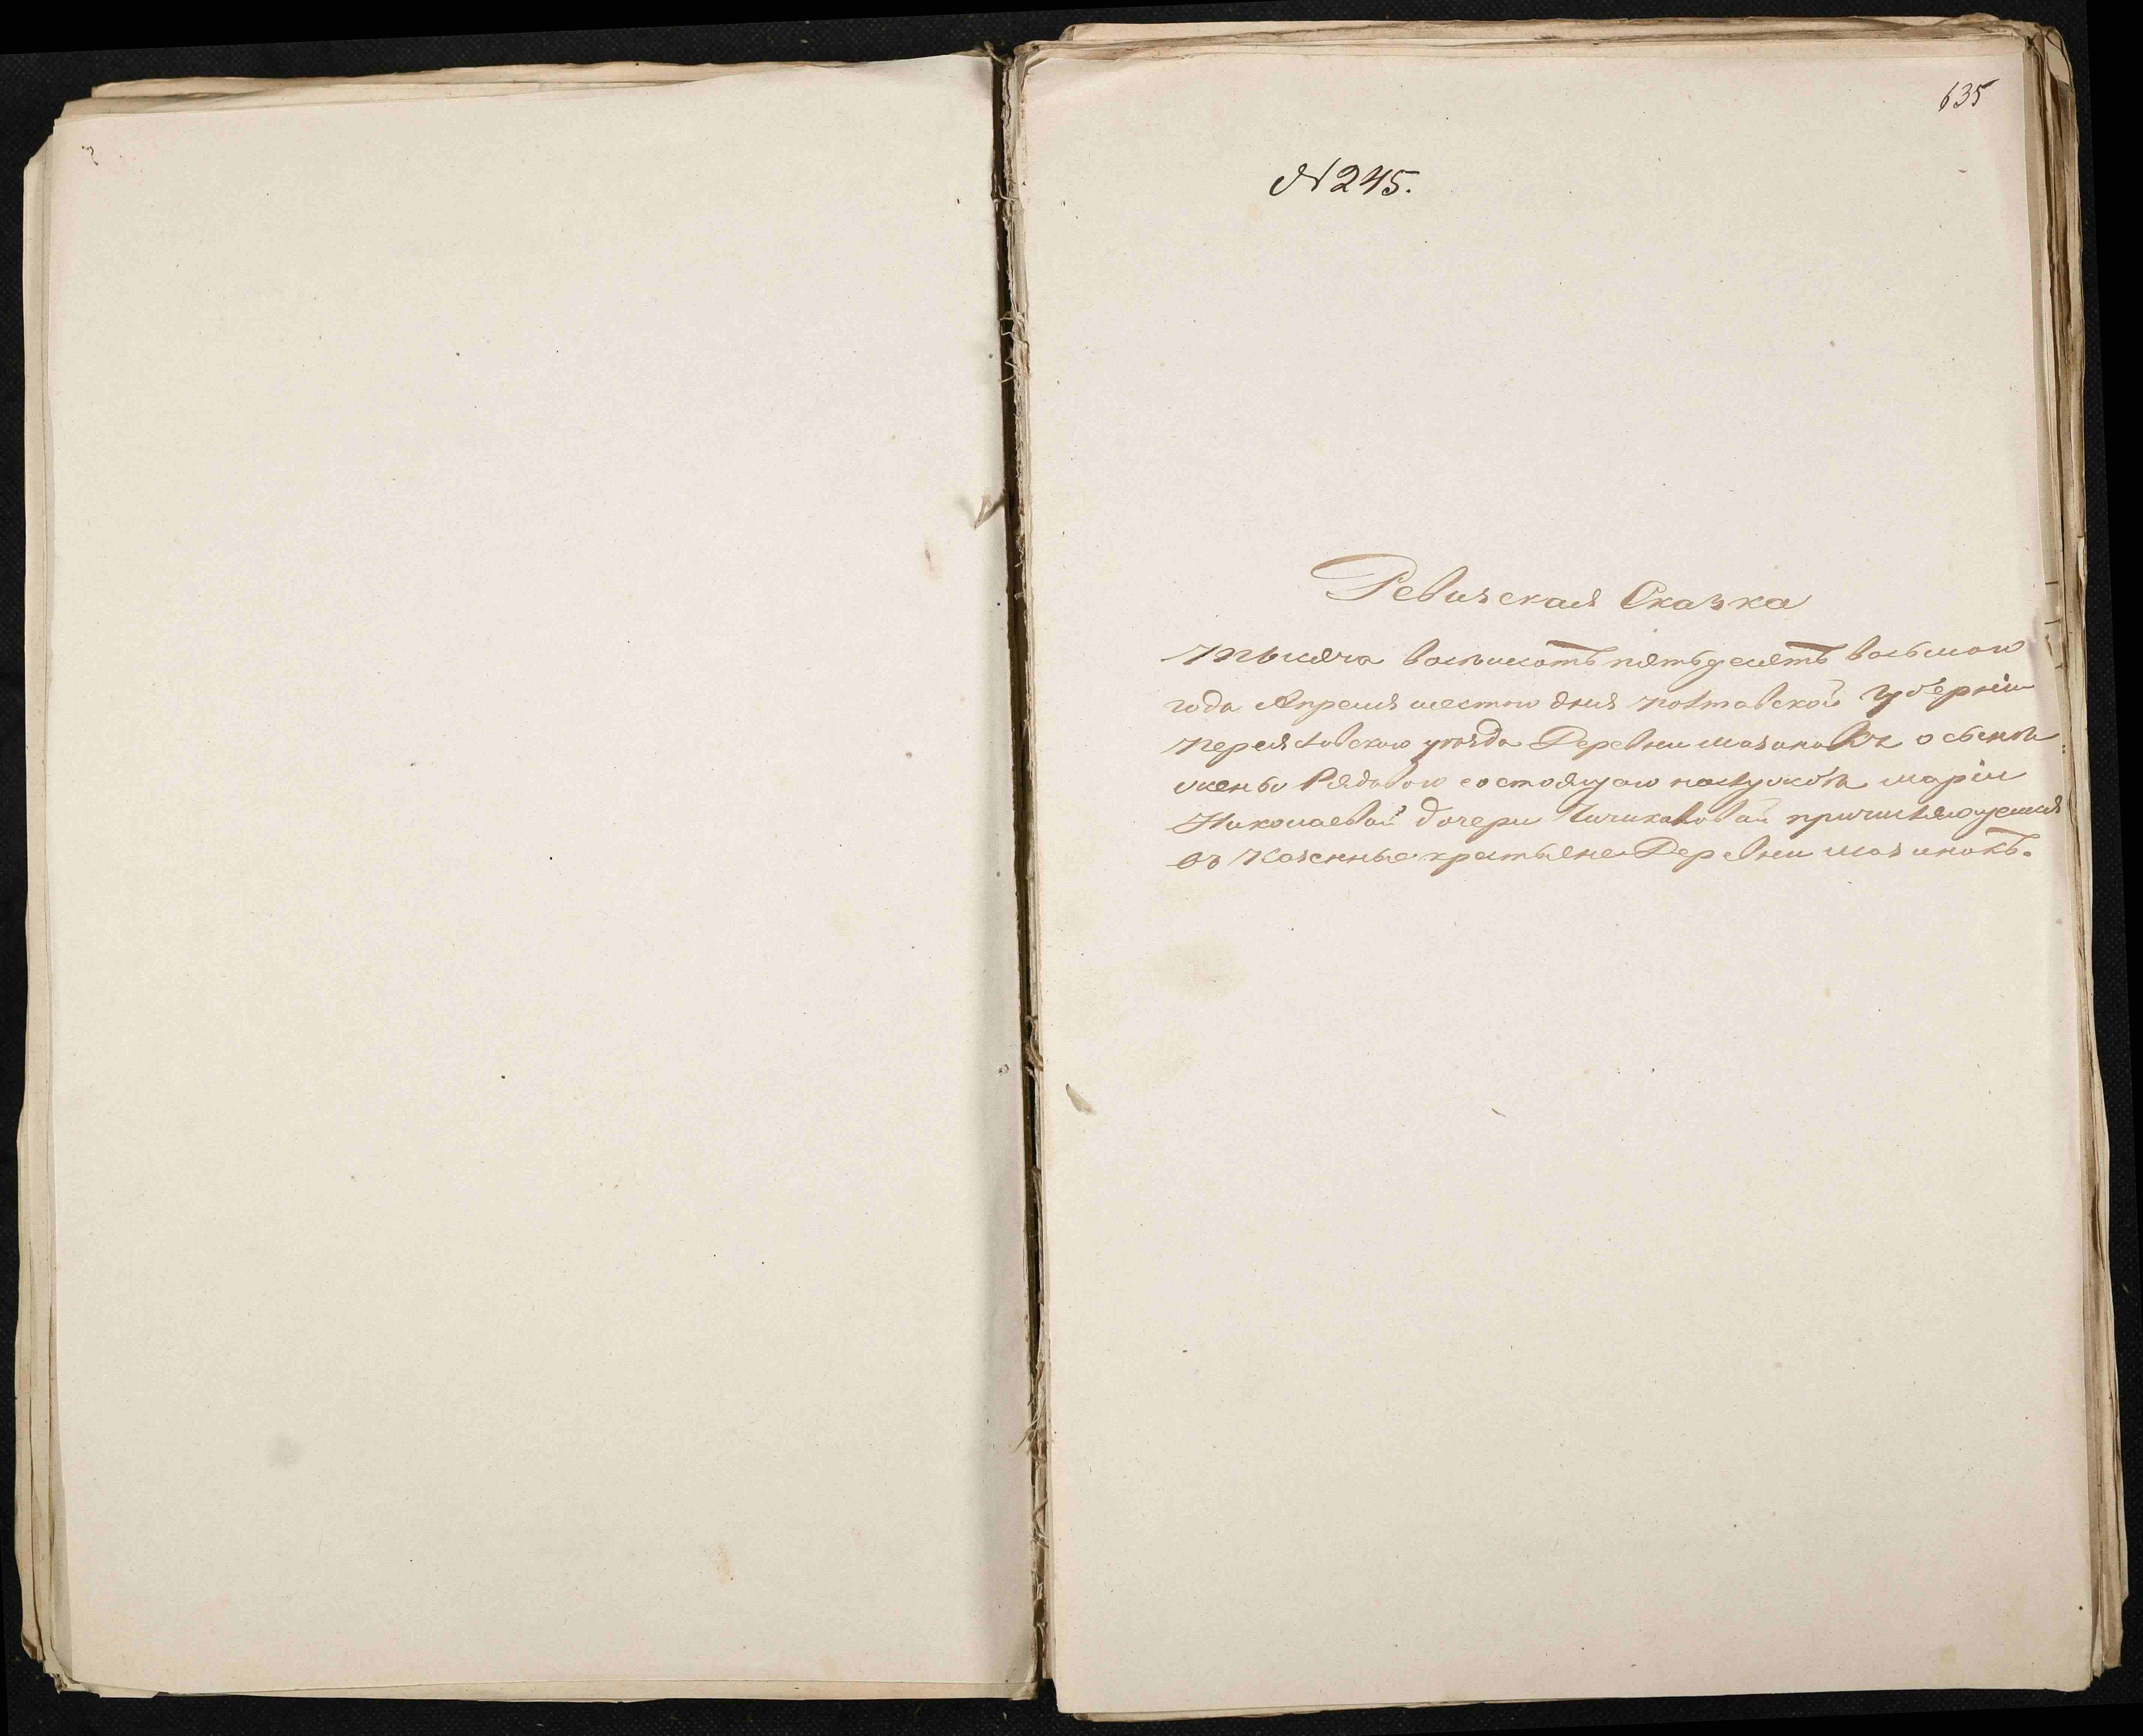 635
N 245.
Ревизская Сказка
тысяча восемсотъ пятьдесятъ восьмого
года Апреля шестого дня Полтавской губерніи
Переяславского уезда Деревни о сынѣ
жены Рядового состоящаго на службѣ маріи
Николаевой дочери причисляющемся
въ Казенные крестьяне Деревни